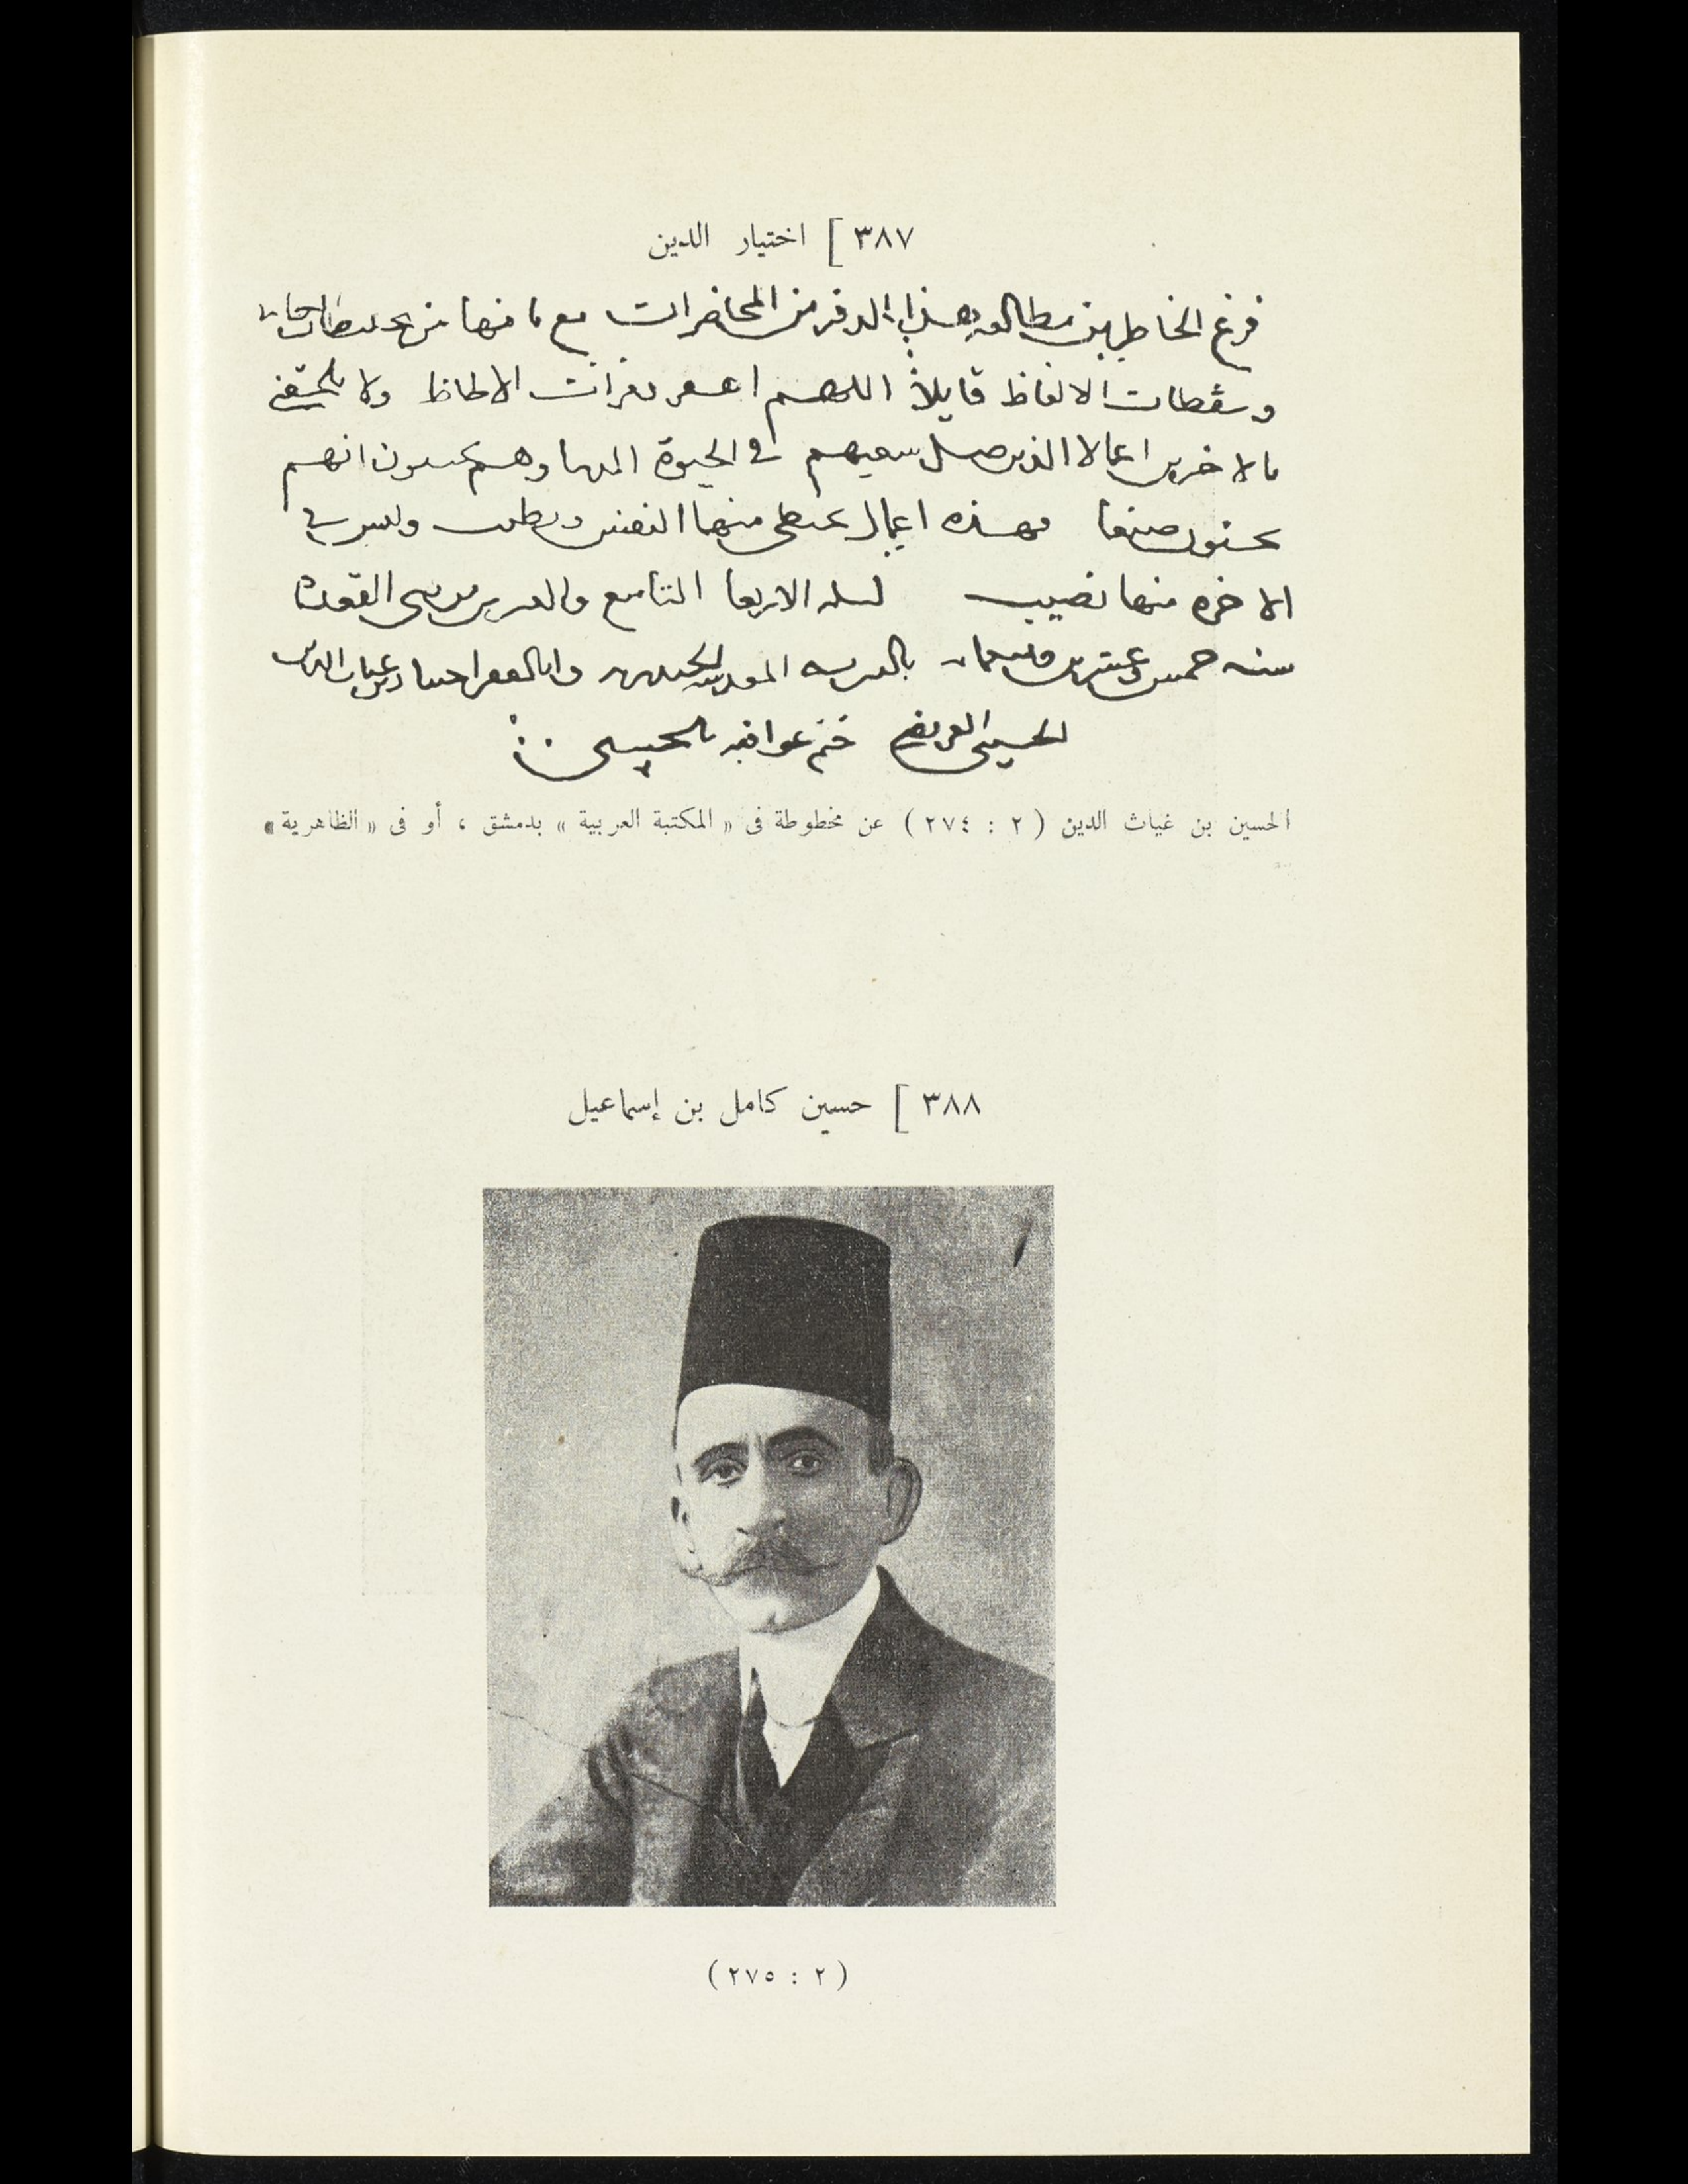 ٣٨٧ [ اختيار الدين
فرغ الخاطر من مطالعه هذا الدفتر من المحاضرات مع ما فيها من
وسقطات الالفاظ قايلاً اللهم اغفر الالحاظ ولا تلحقنى
بالاخرين اعمالا الذين ضل سعيهم فى الحيوة الدنيا وهم يحسبون انهم
يحسنون صنعا فهذه اعمال منها النفس وليس لى فى
الاخره منها نصيب ليله الاربعا التاسع والعشرين من ذى القعدة
سنه خمس وعشرين بالمدرسه وانا الفقير اختيار بن غياث الدين
الحسينى ختم عواقبه بالحسنى
الحسين بن غياث الدين ( ٢ : ٢٧٤ ) عن مخطوطة فى « المكتبة العربية » بدمشق ، أو فى « الظاهرية »
٣٨٨ [ حسين كامل بن إسماعيل
( ٢ : ٢٧٥ )